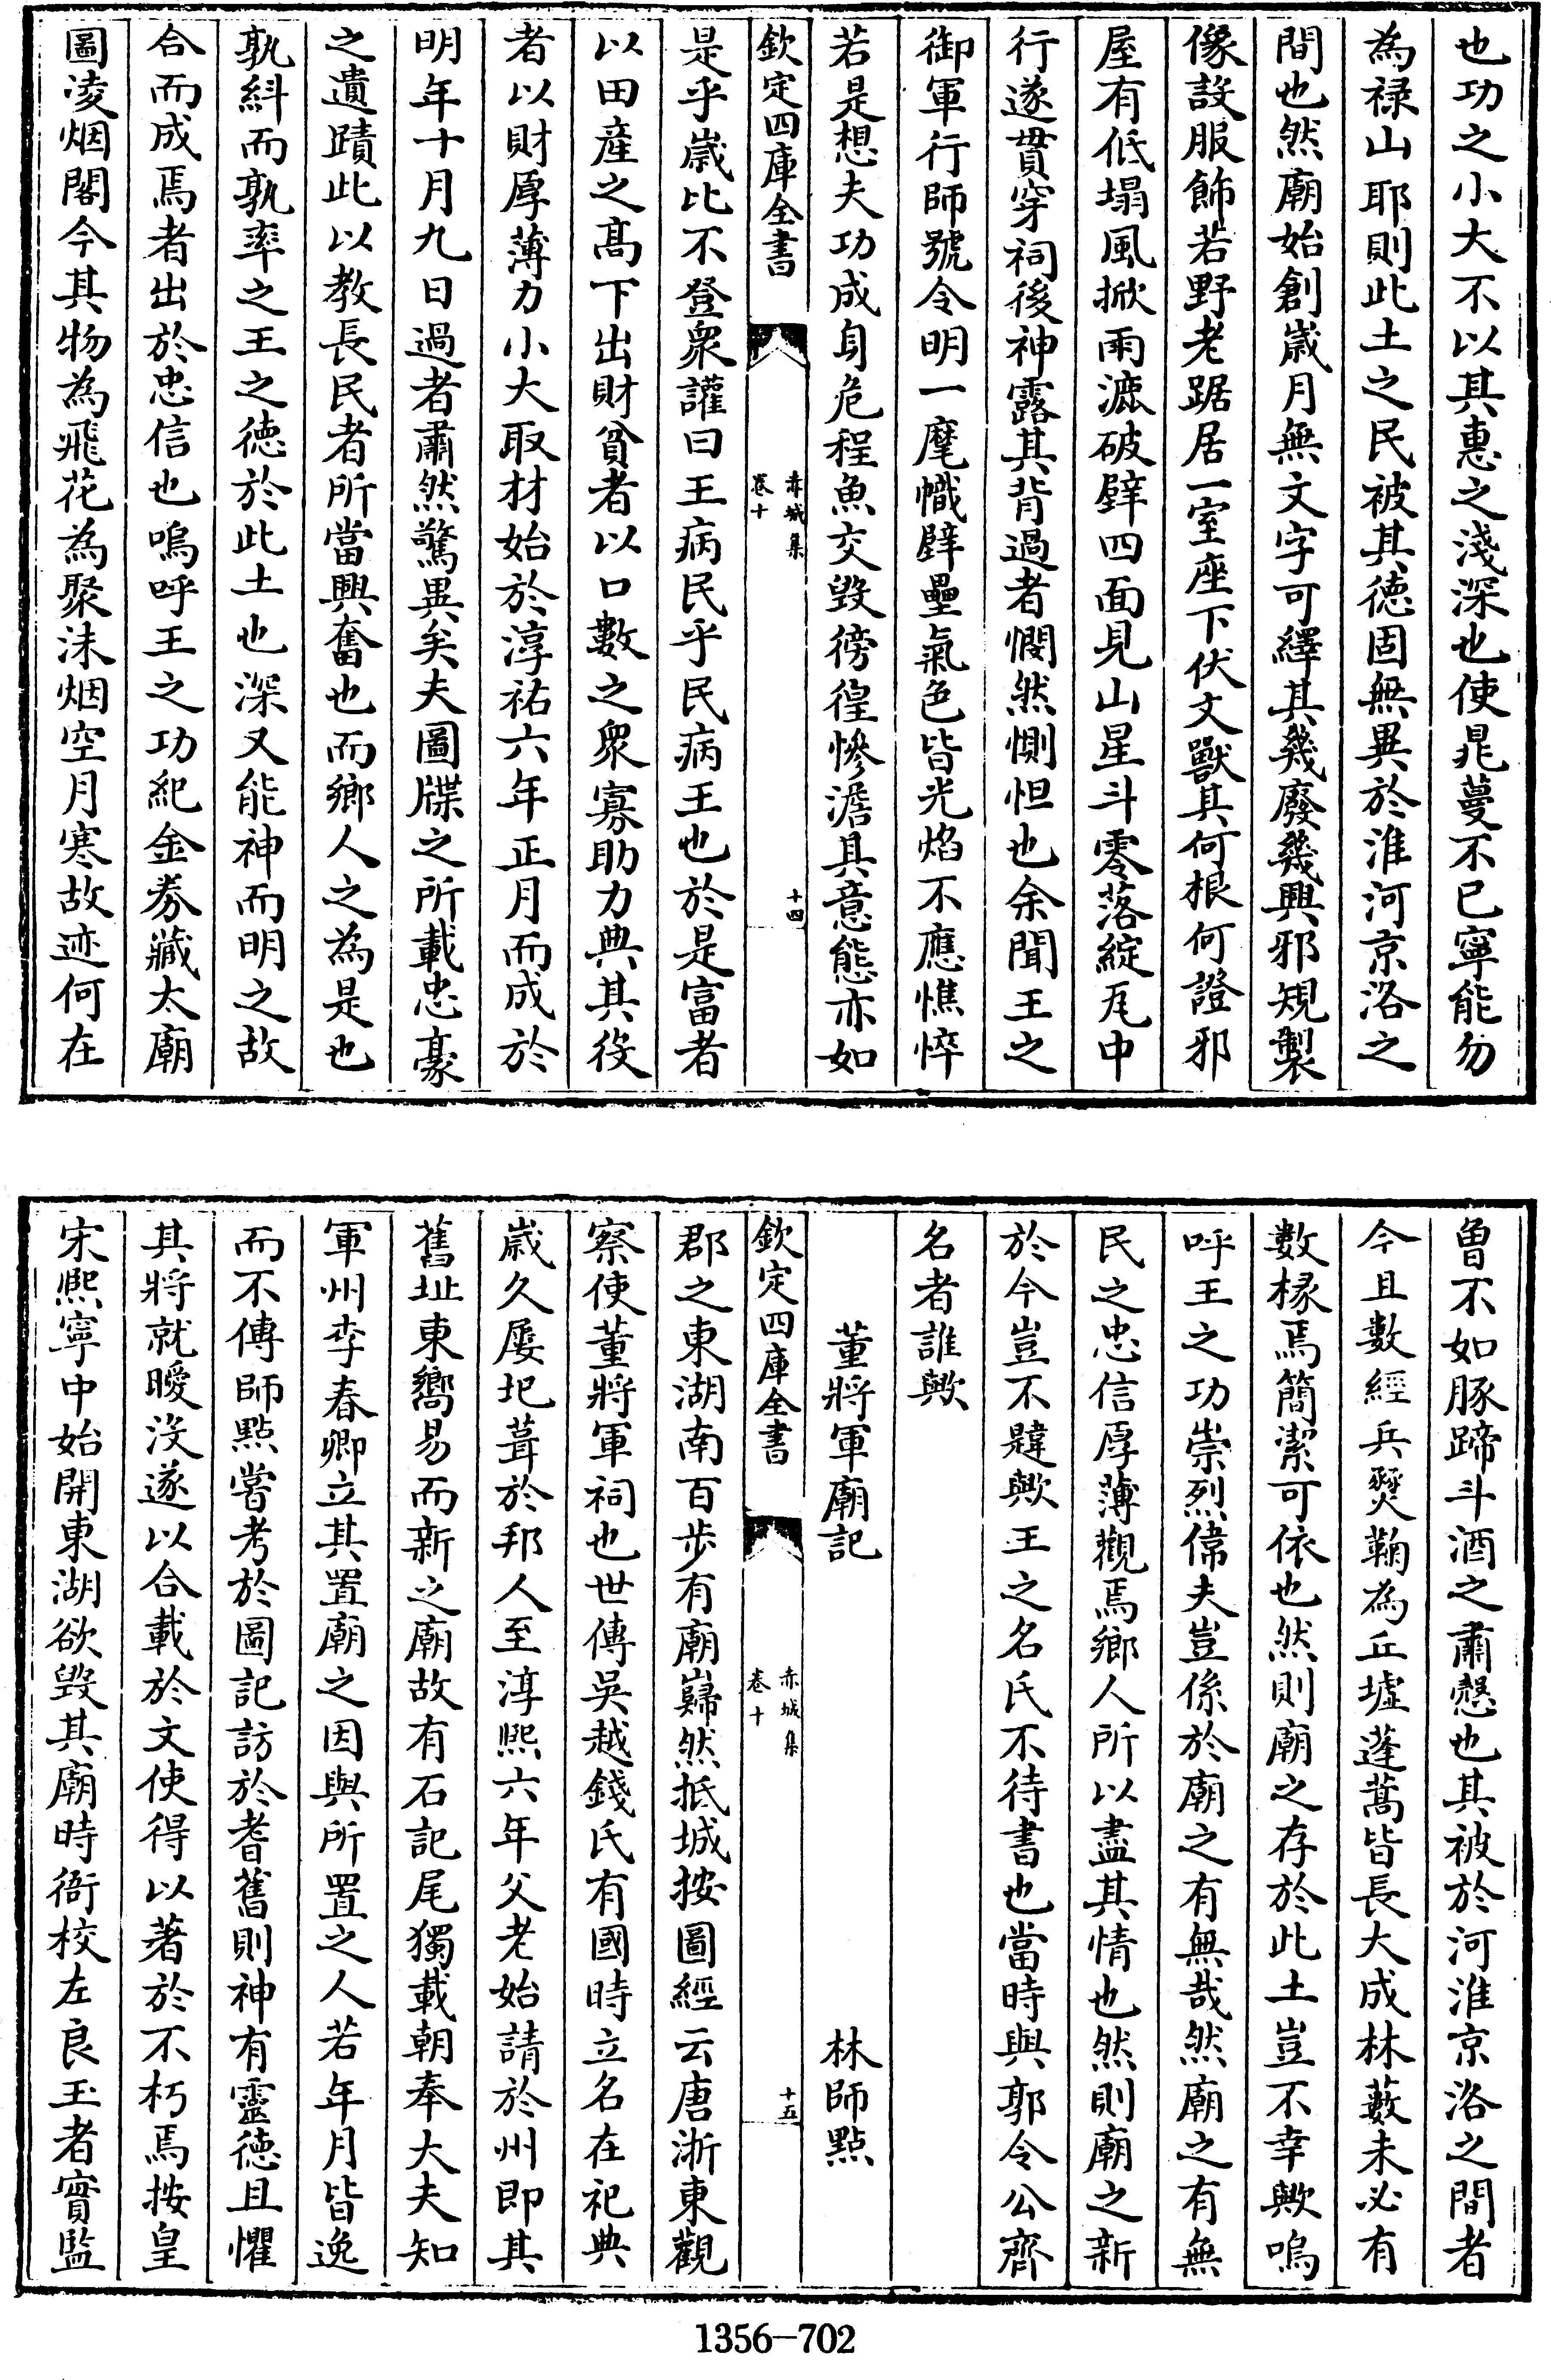 也功之小大不以其惠之淺深也使鼂蔓不已寧能勿
為禄山耶則此土之民被其徳固無異於淮河京洛之
間也然廟始創嵗月無文字可繹其幾廢幾興邪規製
像設服飾若野老踞居一室座下伏文獸其何根何證邪
屋有低塌風掀雨漉破壁四面見山星斗零落綻瓦中
行遂貫穿祠後神露其背過者憫然惻怛也余聞王之
御軍行師號令明一麾幟壁壘氣色皆光焰不應憔悴
若是想夫功成身危程魚交毀徬徨慘澹其意態亦如
欽定四庫全書
赤城集
卷十
十四
是乎嵗比不登衆讙曰王病民乎民病王也於是富者
以田産之髙下出財貧者以口數之衆寡助力典其役
者以財厚薄力小大取材始於淳祐六年正月而成於
明年十月九日過者肅然驚異矣夫圖牒之所載忠豪
之遺蹟此以教長民者所當興奮也而鄉人之為是也
孰糾而孰率之王之徳於此土也深又能神而明之故
合而成焉者出於忠信也嗚呼王之功紀金劵藏太廟
圖凌烟閣今其物為飛花為聚沫烟空月寒故迹何在
曾不如豚蹄斗酒之肅愨也其被於河淮京洛之間者
今且數經兵燹鞠為丘墟蓬蒿皆長大成林藪未必有
數椽焉簡潔可依也然則廟之存於此土豈不幸歟嗚
呼王之功崇烈偉夫豈係於廟之有無哉然廟之有無
民之忠信厚薄觀焉鄉人所以盡其情也然則廟之新
於今豈不韙歟王之名氏不待書也當時與郭令公齊
名者誰歟
董將軍廟記
林師㸃
欽定四庫全書
赤城集
卷十
十五
郡之東湖南百步有廟巋然抵城按圖經云唐浙東觀
察使董將軍祠也世傳吳越錢氏有國時立名在祀典
嵗久屢圯葺於邦人至淳熙六年父老始請於州即其
舊址東嚮易而新之廟故有石記尾獨載朝奉大夫知
軍州李春卿立其置廟之因與所置之人若年月皆逸
而不傳師㸃嘗考於圖記訪於耆舊則神有靈徳且懼
其將就曖沒遂以合載於文使得以著於不朽焉按皇
宋熙寧中始開東湖欲毀其廟時衙校左良玉者實監
1356-702